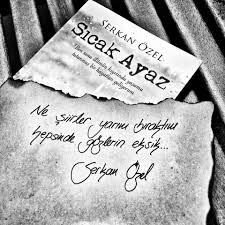 SERKAN ÖZEL
Sıcak Ayaz
Ne şiirler yarım bıraktım
hepsinde gözlerin eksik...
Serkan Özel